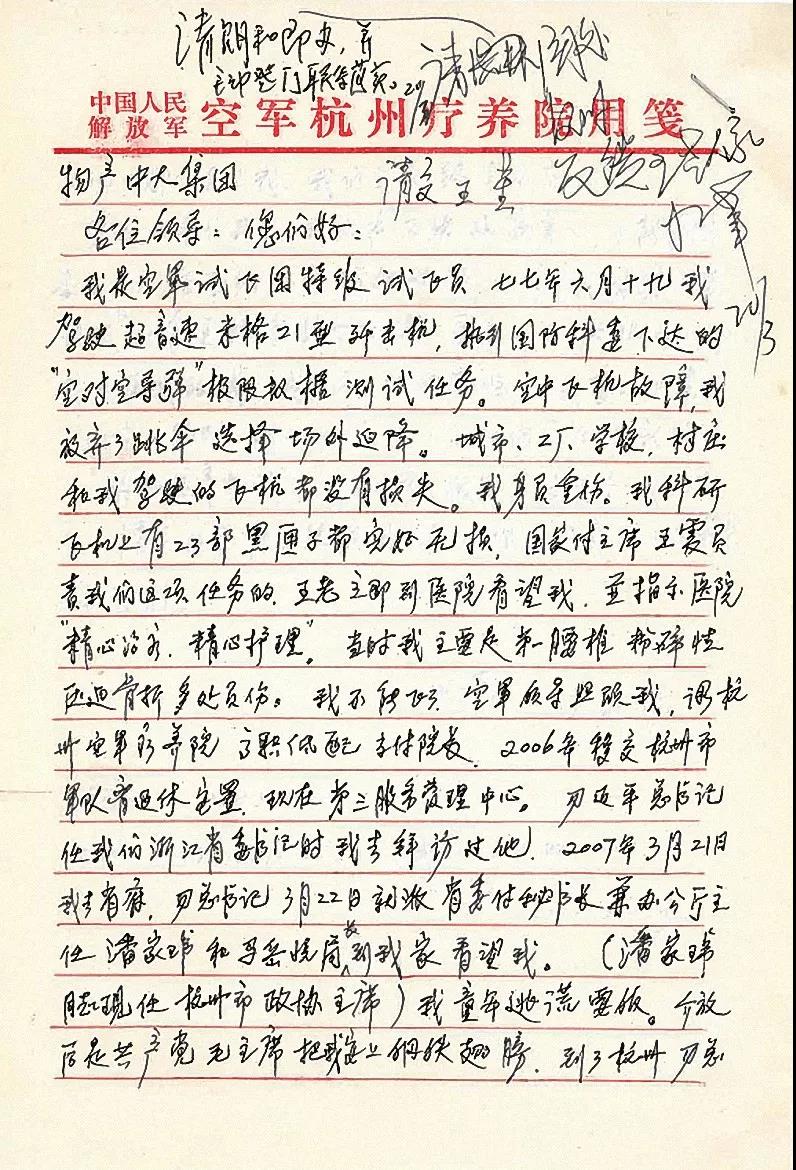 请朗和即办，并
主动登门联系落实。20/
请
中国人民
解放军 空军杭州疗养院用笺
反馈
请交王
20/3
物产中大集团
各位领导：您们好：
我是空军试飞团特级试飞员 七七年六月十九我
驾驶超音速米格21型歼击机，执行国防科委下达的
"空对空导弹"极限数据测试任务。空中飞机故障，我
放弃了跳伞 选择场外迫降。城市、工厂、学校、村庄
和我驾驶的飞机都没有损失。我身负重伤。我科研
飞机上有23部黑匣子都完好无损，国家付主席王震负
责我们这项任务的，王老立即到医院看望我，并指示医院
"精心治疗、精心护理"。当时我主要是第一腰椎粉碎性
压迫骨折多处负伤。我不能飞了，空军领导照顾我，调杭
州空军疗养院高职低配 付院长，2006年移交杭州市
军队离退休安置，现在第三服务管理中心。习近平总书记
任我们浙江省委书记时我去拜访过他，2007年3月21日
我去省府，习总书记3月22日就派省委付秘书长兼办公厅主
任潘家玮和马岳晓局长到我家看望我。（潘家玮
同志现任杭州市政协主席）我童年逃荒要饭。介放
后是共产党毛主席把我安上钢铁翅膀，到了杭州习总